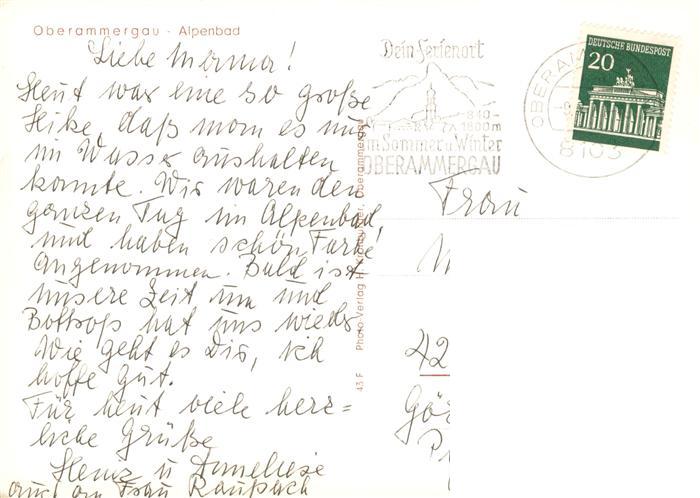 Oberammergau - Alpenbad
Liebe Mema!
Heut war eine so große
Hitze, daß man es nur
im Wasser aushalten
konnte. Wir waren den
ganzen Tag im Alpenbad,
und haben schön Farbe
angenommen. Bald ist
unsere Zeit um und
Bottrop hat uns wieder
Wie geht es Dir, ich
hoffe gut.
Für heut viele herz=
liche Grüße
Heinz u Anneliese
auch an Frau Raußach
43 F Photo-Verlag H. Oberammergau
Dein Ferienort
840-
1800m
im Sommer u Winter
OBERAMMERGAU
DEUTSCHE BUNDESPOST
20
8103
Frau
42